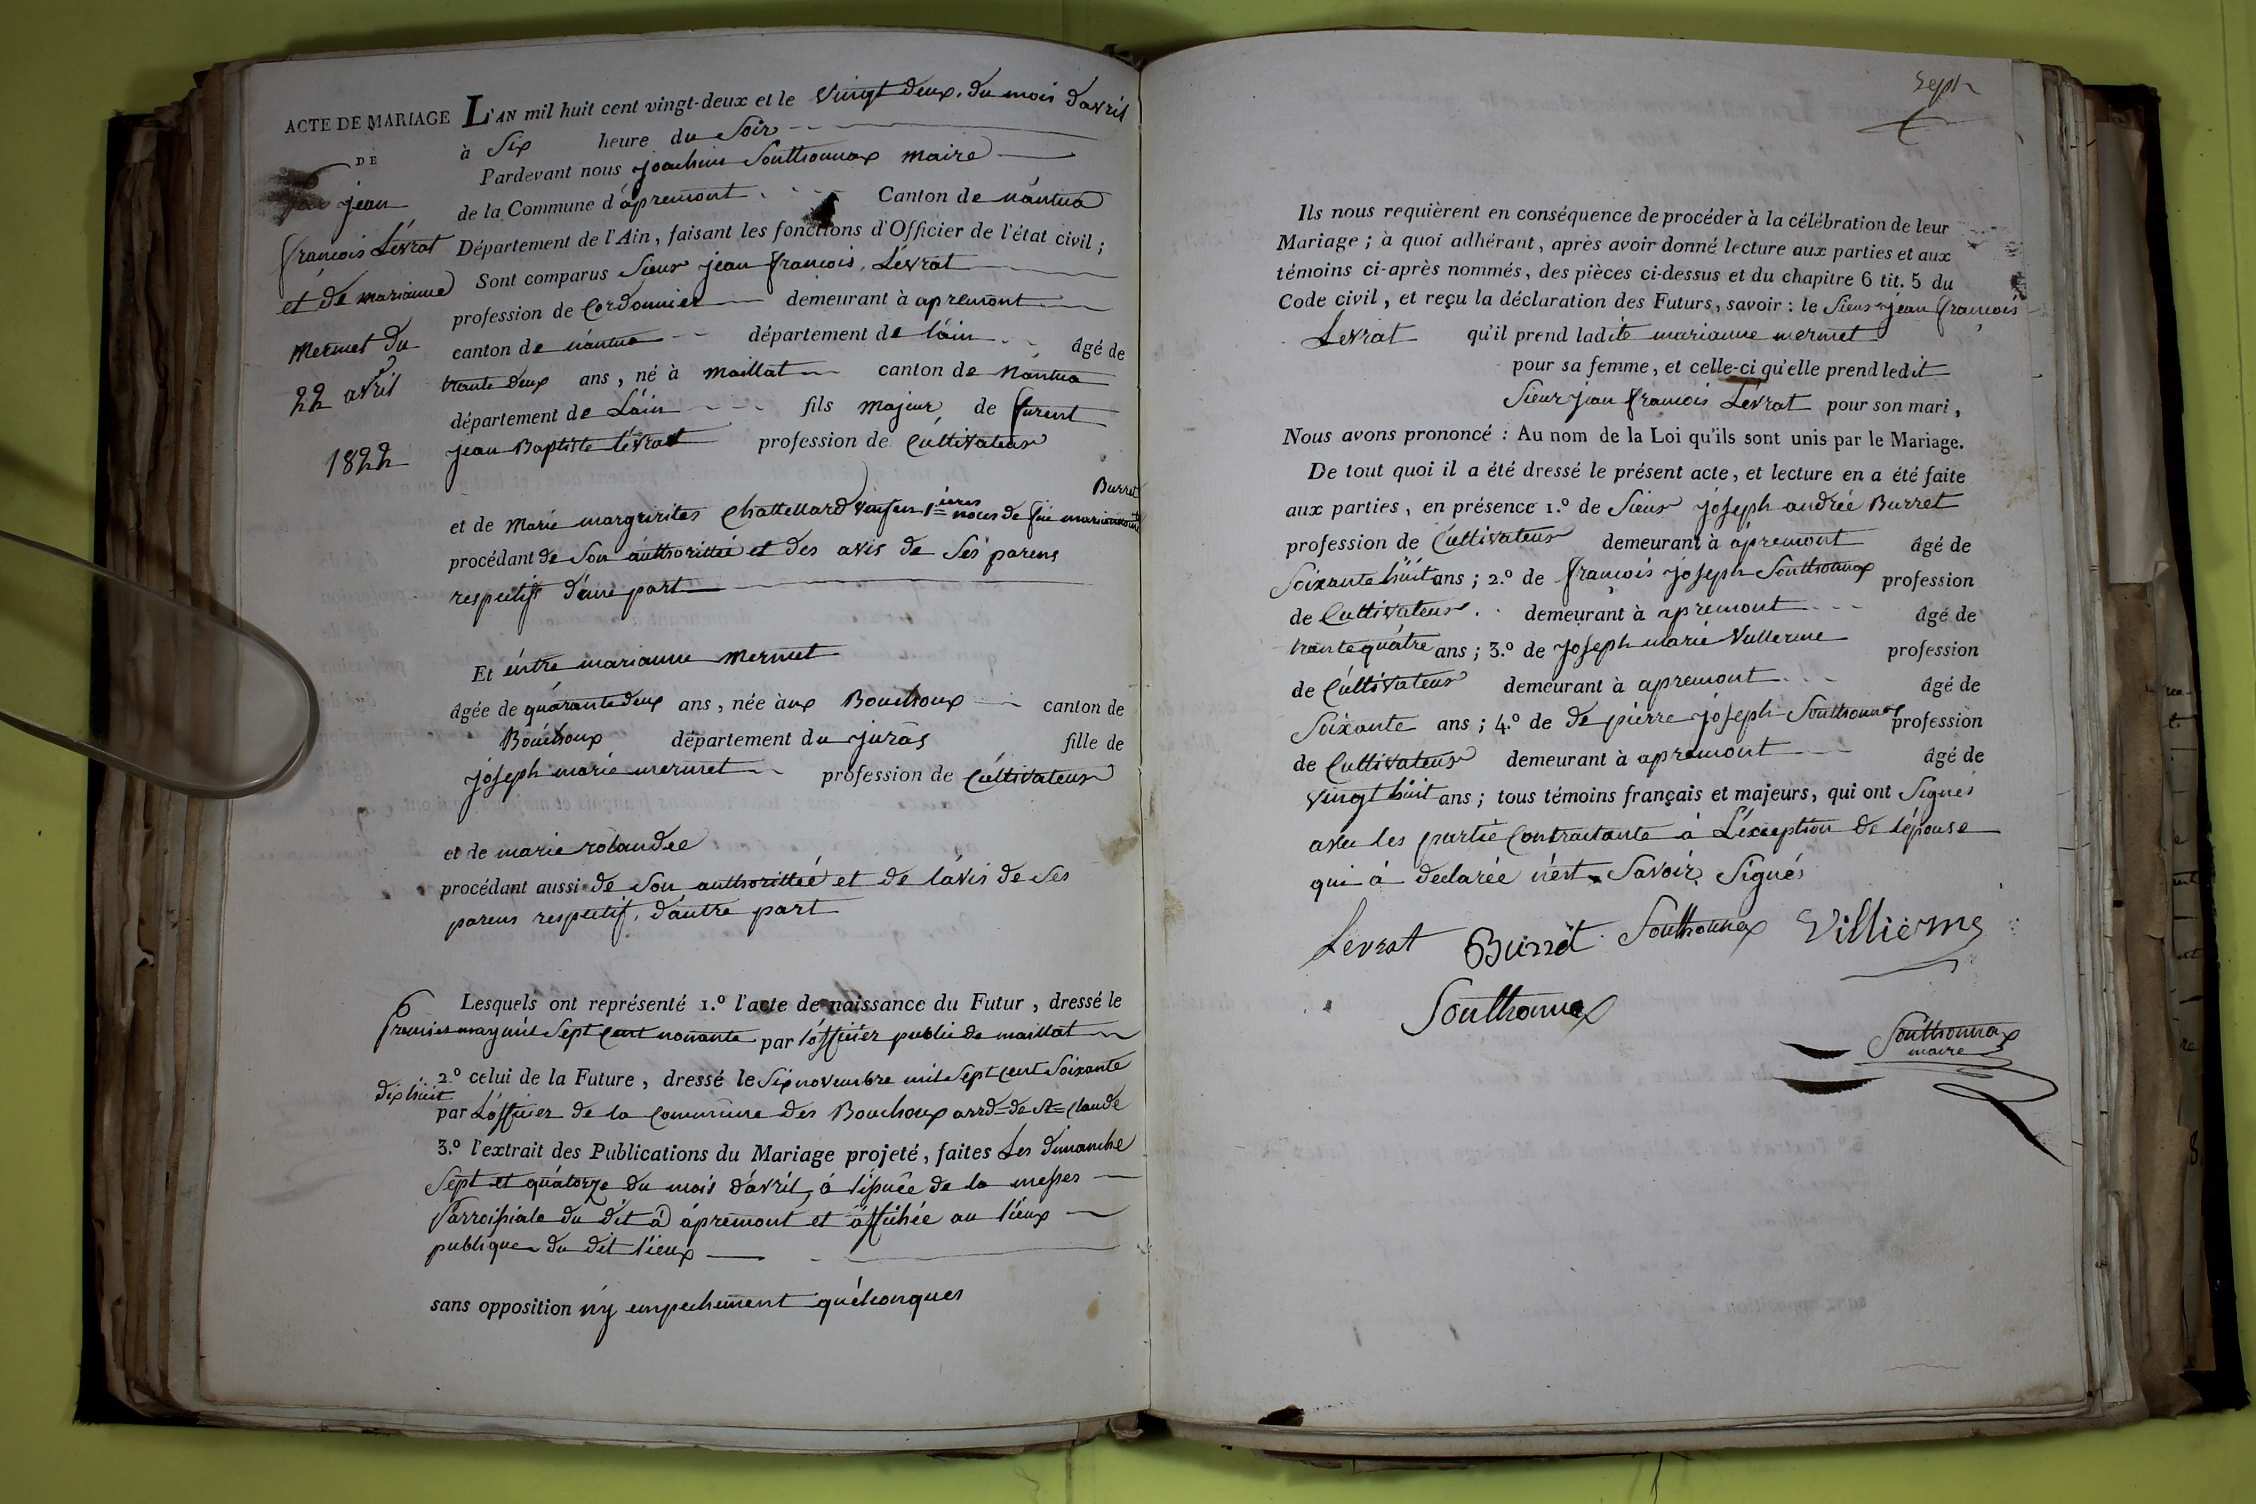 ACTE DE MARIAGE
DE
jean
françois Lévrat
et de marianne
Mermet du
22 avril
1822
L'AN mil huit cent vingt-deux et le vingt deux, du mois davril
à Six heure du Soir
Pardevant nous joachim Sonthonnax maire
de la Commune d'ápremont Canton de nántua
Département de l'Ain, faisant les fonctions d'Officier de l'état civil;
Sont comparus Sieur jean françois, Lévrat
profession de Cordonnier demeurant à apremont
canton de nántua département de láin âgé de
trante deux ans, né à Maillat canton de Nántua
département de Láin fils Majeur de furent
jean Baptiste lévrat profession de Cúltivateur
Burret
et de Marie margueritas Chattellard veuf en 1ères noces de füe marianne
procédant de Son aúthorittéé et des avis de Ses parens
respectifs dúne part
Et éntre marianne Mermet
âgée de quárante deux ans, née àux Bouchoux canton de
Bouchoux département du juras fille de
jóseph marie mermet profession de Cúltivateur
et de marie rolandée
procédant aussi de Son authorittéé et de lávis de Ses
parens respectif, dáutre part
Lesquels ont représenté 1.º l'acte de naissance du Futur, dressé le
premier may mil Sept Cent nonante par lófficier public de maillat
2.º celui de la Future, dressé le Six novembre mil Sept Cent Soixante
dix húit
par Lófficier de la Commune des Bouchoux arrd= de St= Claude
3.º l'extrait des Publications du Mariage projeté, faites Les dimanche
Sept et quátorze du mois dávril, á lissuée de la messes
Parroissiale du dit á ápremont et áffichée au lieux
publique du dit lieux
sans opposition n'y empechement quélconques
Ils nous requièrent en conséquence de procéder à la célébration de leur
Mariage; à quoi adhérant, après avoir donné lecture aux parties et aux
témoins ci-après nommés, des pièces ci-dessus et du chapitre 6 tit. 5 du
Code civil, et reçu la déclaration des Futurs, savoir: le Sieur jean françois
Levrat qu'il prend ladite marianne mermet
pour sa femme, et celle-ci qu'elle prend ledit
Sieur jean francois Levrat pour son mari,
Nous avons prononcé: Au nom de la Loi qu'ils sont unis par le Mariage.
De tout quoi il a été dressé le présent acte, et lecture en a été faite
aux parties, en présence 1.º de Sieur jóseph andréé Burret
profession de Cúltivateur demeurant à ápremont âgé de
Soixante húit ans; 2.º de françois jóseph Sonthonnax profession
de Cultivateur demeurant à apremont âgé de
trante quátre ans; 3.º de joseph marie Vullerme profession
de Cúltivateur demeurant à apremont âgé de
Soixante ans; 4.º de de pierre jóseph Sonthonnax profession
de Cultivateur demeurant à apremont âgé de
vingt húit ans; tous témoins français et majeurs, qui ont Signés
avec les partie Contractante á Léxception de lépouse
qui á declaréé n'ést Savoir Signés
Levrat Burret Sonthonnax Villierme
Sonthonnax
Sonthonnax
maire